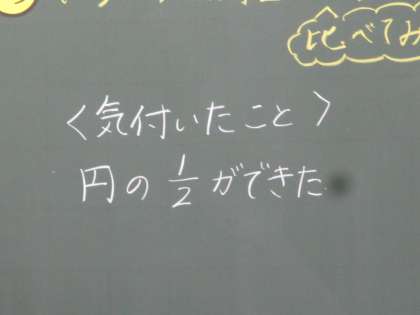 比べてみ
〈気付いたこと〉
円の1/2ができた